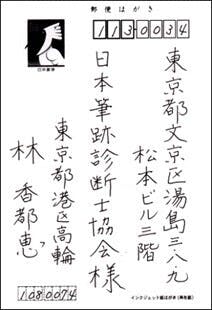 郵便はがき
113-0034
日本郵便
東京都文京区湯島三八九
松本ビル三階
日本筆跡診断士協会様
東京都港区高輪
林香都恵
1080074
インクジェット紙はがき(再生紙)